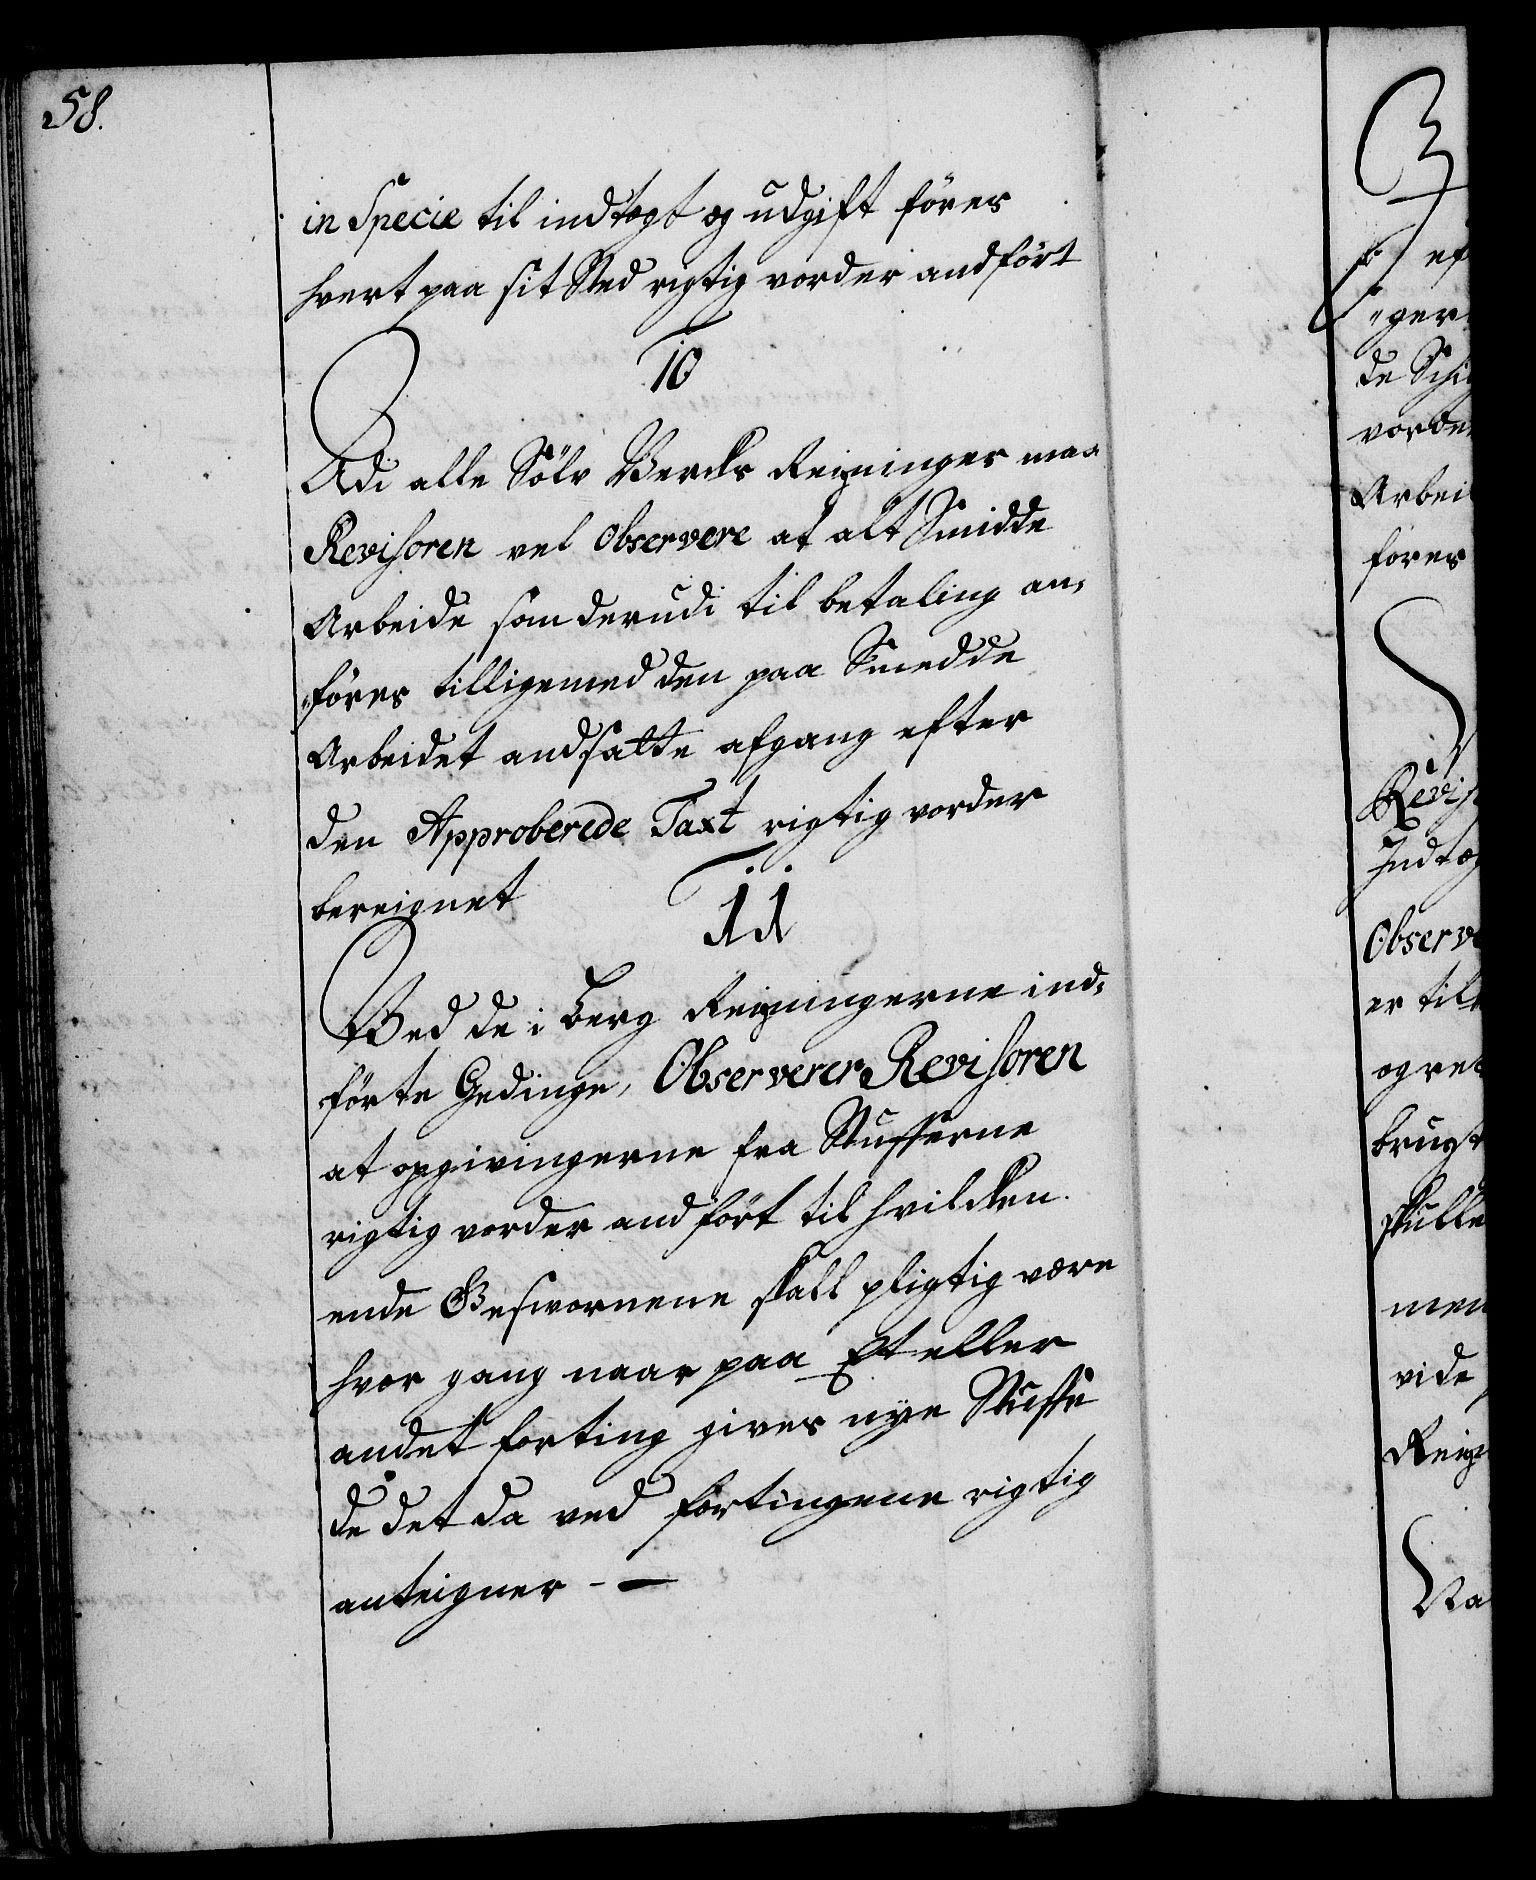 58.
in Specie til indtægt og udgift föres
hvert paa sit Sted rigtig vorder andfört
10
Udi alle Sölv Vercks Reigninger maa
Revisoren vel Observere at alt Smidde
Arbeide som derudi til betaling an„
„föres tilligemed den paa Smedde
Arbeidet andsatte afgang efter
den Approberede Taxt rigtig vorder
bereignet
11
Ved de i Berg Reigningerne ind„
förte Gedinge, Observerer Revisoren
at opgivingerne fra Stufferne
rigtig vorder andfört til hvilcken
ende Geswornene skall pligtig være
hvor gang naar paa Et eller
andet forting gives nye Stuffe
de det da ved fortingene rigtig
anteigner -—
ef
„ger
de Schi
vorde
Arbei
föres
Revis
Indtæg
Observe
er til
og re
brugt
skulle
men
vide
Reig
Na